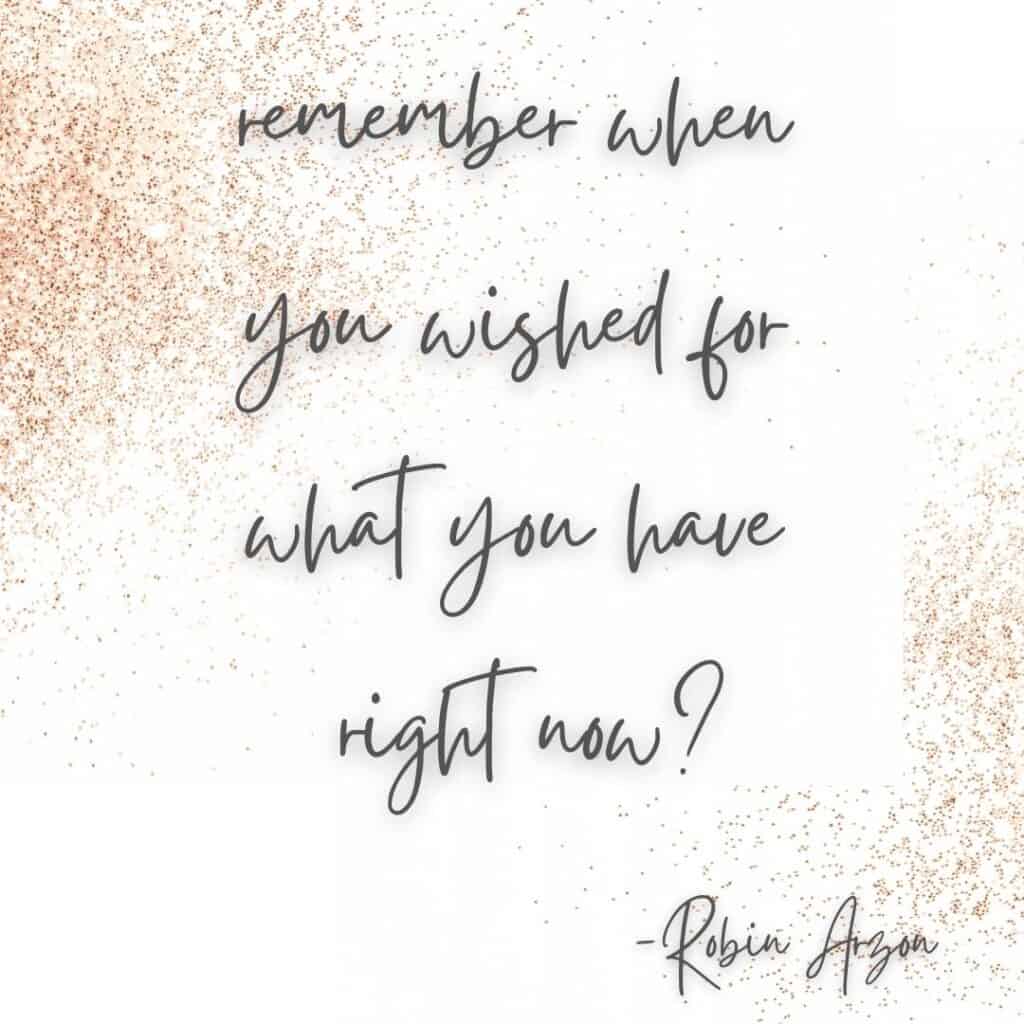 remember when
you wished for
what you have
right now?
-Robin Arzon